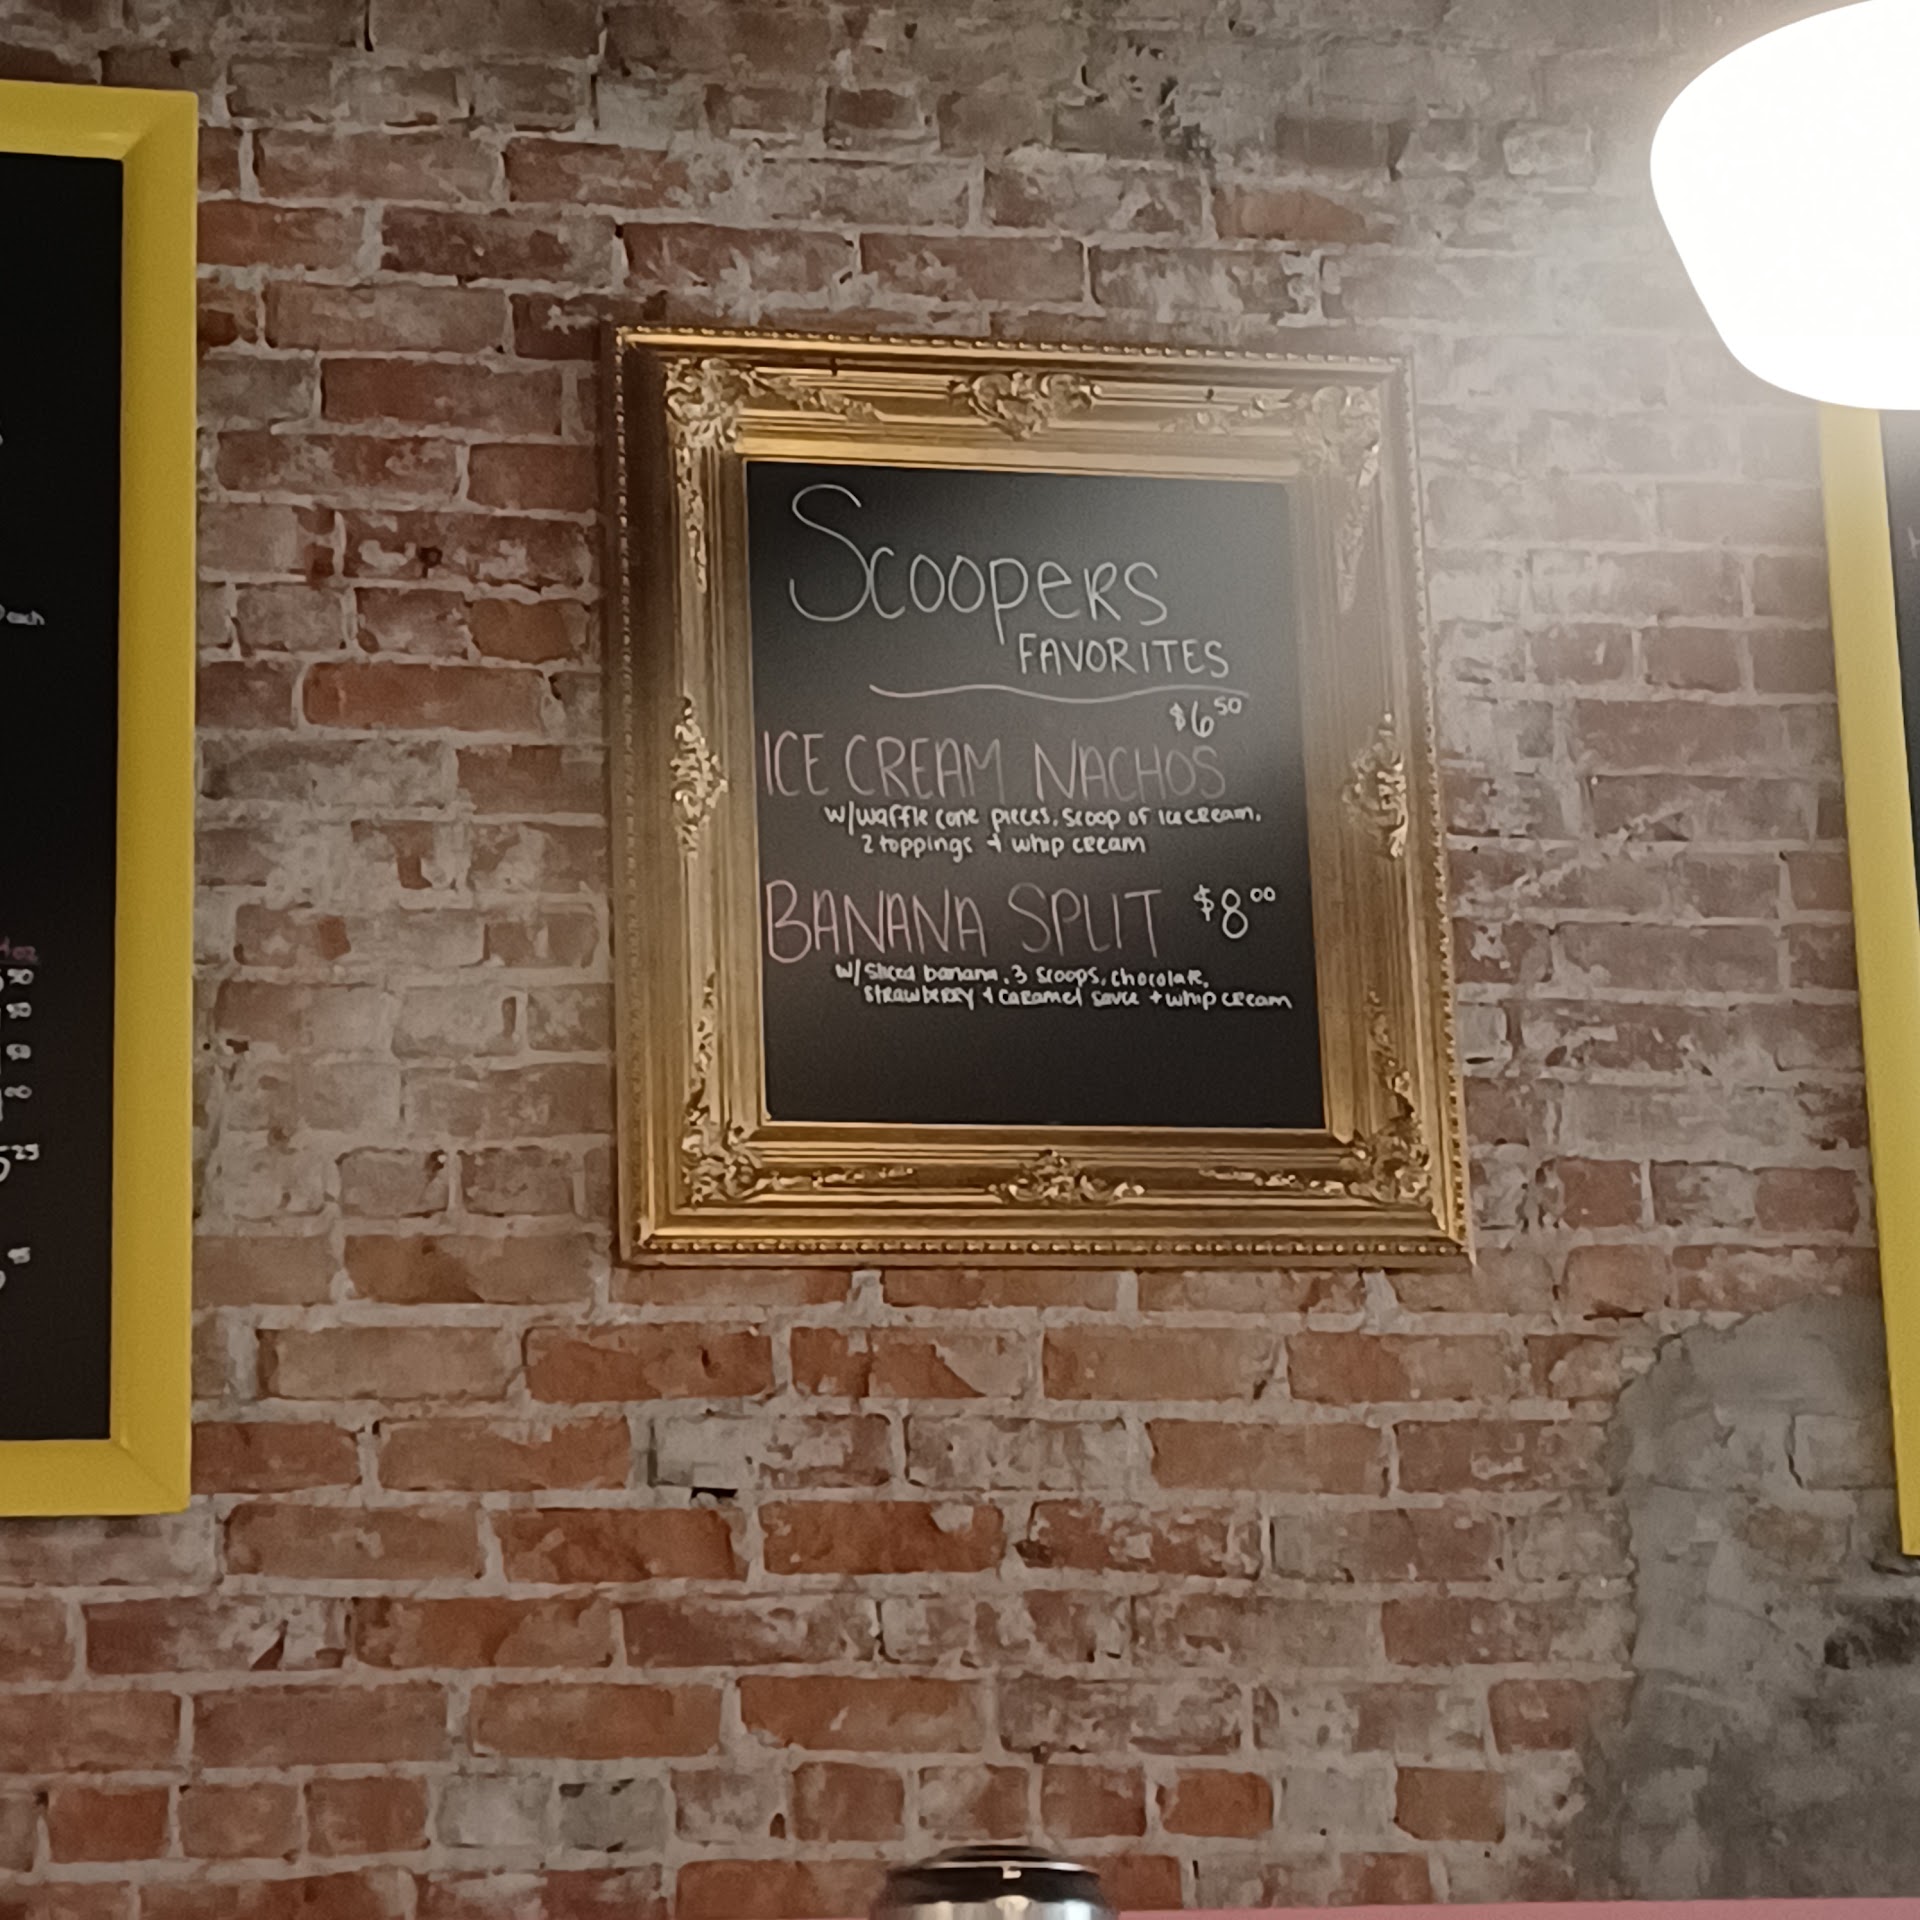 Scoopers
FAVORITES
$6.50
ICE CREAM NACHOS
w/waffle cone pieces, scoop of ice cream,
2 toppings + whip cream
BANANA SPLIT $8.00
w/ sliced banana, 3 scoops, chocolate,
strawberry + caramel sauce + whip cream
each
50
50
50
00
25